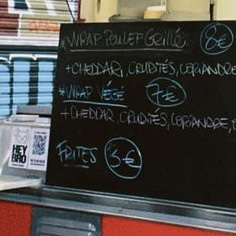 WRAP POULET GRILLÉ 8€
+CHEDDAR, CRUDITÉS, CORIANDRE
*WRAP VÉGÉ 7€
+CHEDDAR, CRUDITÉS, CORIANDRE,
FRITES 3€
HEY
BRO